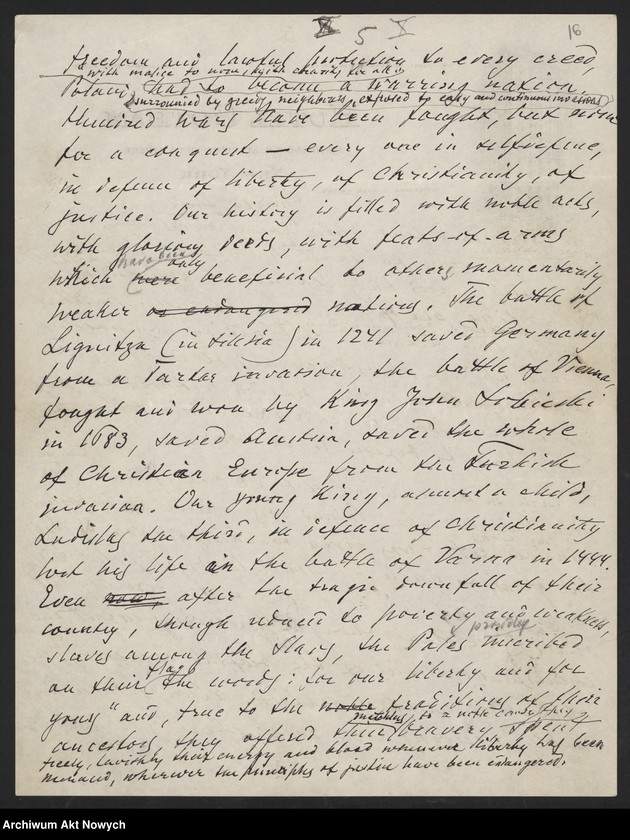 X 5 X
16
freedom and lawful protection to every creed,
"with malice to none, with charity for all"
Poland, had to become a warring nation.
surrounded by greedy neighbours, exposed to easy and continuous invasions
Hundred wars have been fought, but none
for a conquest – every one in selfdefense,
in defence of liberty, of Christianity, of
justice. Our history is filled with noble acts,
with glorious deeds, with feats-of-arms
have been only
which were beneficial to others momentarily
weaker or endangered nations. The battle of
Lignitza (in Silesia) in 1241 saved Germany
from a Tartar invasion, the battle of Vienna,
fought and won by King John Sobieski
in 1683, saved Austria, saved the whole
of Christian Europe from the Turkish
invasion. Our young King, almost a child,
Ladislas the third, in defence of Christianity
lost his life in the battle of Varna in 1444.
Even now, after the tragic downfall of their
country, though reduced to poverty and weakness,
proudly
slaves among the Slavs, the Poles inscribed
flags
on their the words: for our liberty and for
yours" and, true to the noble traditions of their
ancestors, they offered their bravery spent
freely, lavishly their energy and blood whenever liberty has been
menaced, wherever the principles of justice have been endangered.
Archiwum Akt Nowych